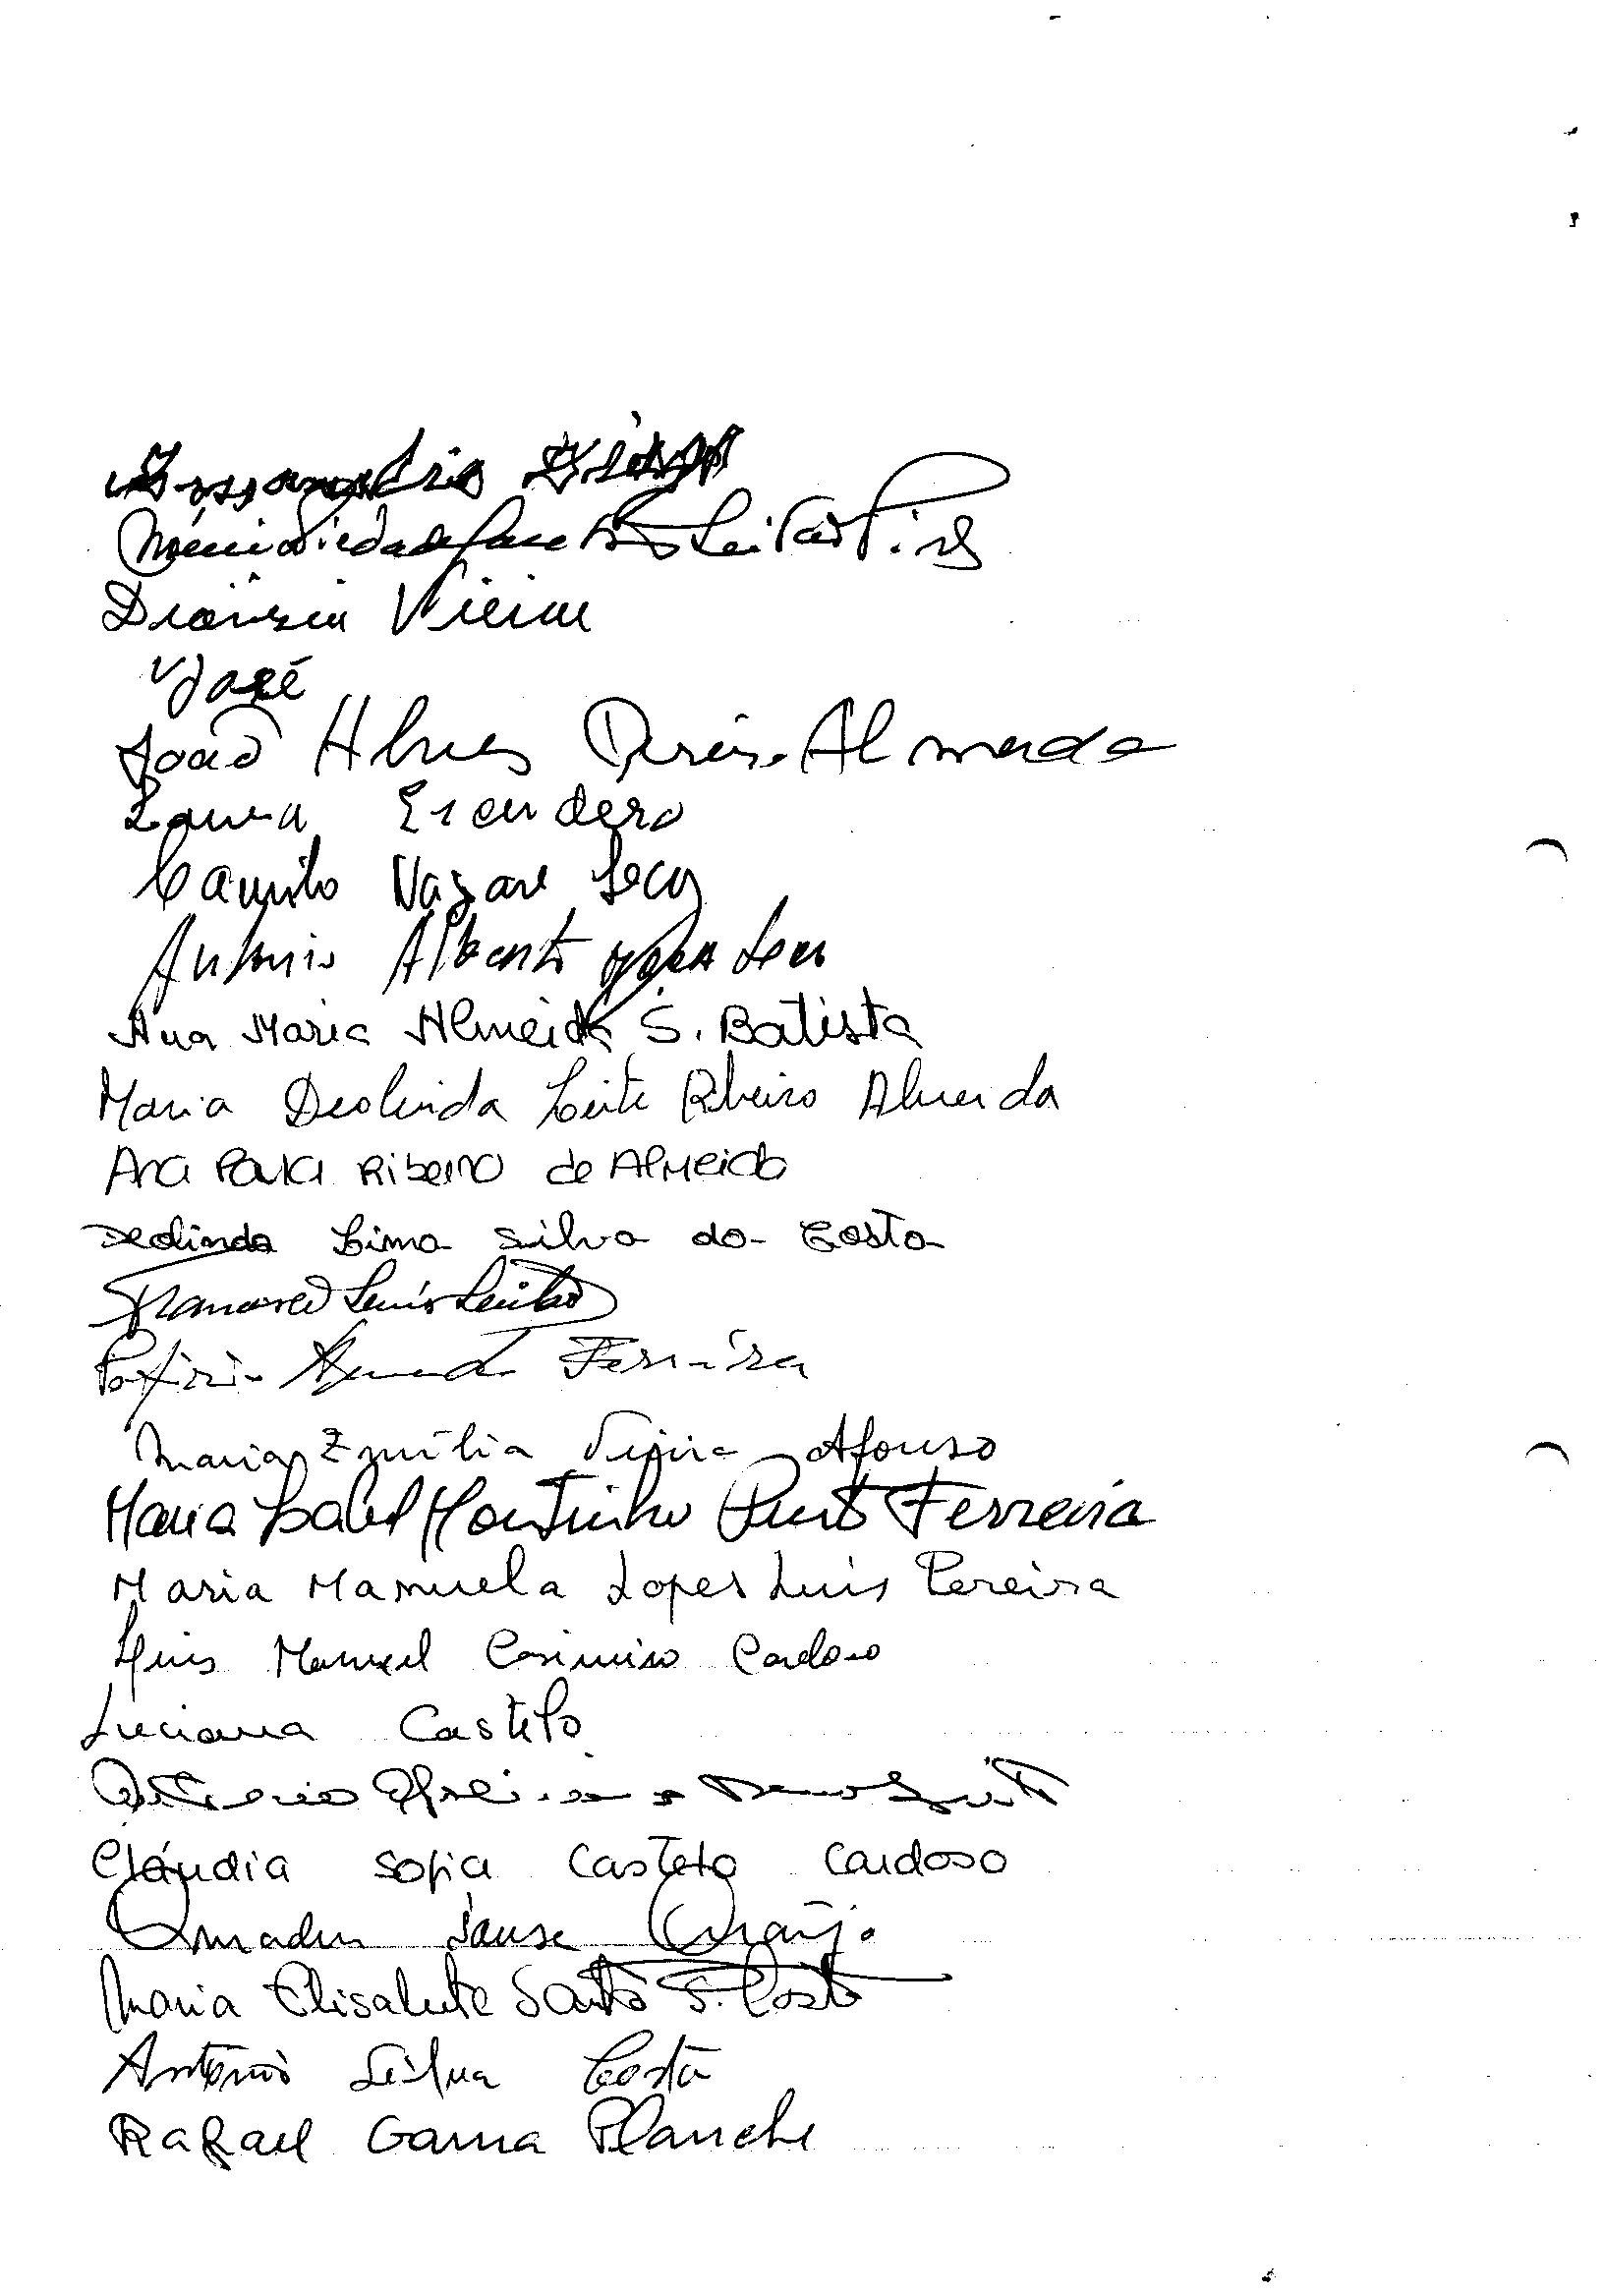 Leitão Pires
Dionísia Vieira
José
João Alves Almada
Laura Escudero
Camilo Nazaré Seco
António Alberto Seco
Ana Maria Almeida S. Batista
Maria Deolinda Leite Ribeiro Almeida
Ana Paula Ribeiro de Almeida
Deolinda Lima Silva da Costa
Francisco Luís Leitão
Porfírio Ferreira
Maria Emília Vieira Afonso
Maria Isabel Moutinho Ferreira
Maria Manuela Lopes Luis Pereira
Luis Manuel Casimiro Cardoso
Luciana Castelo
Cláudia Sofia Castelo Cardoso
Amadeu Sousa Araújo
Maria Elisabete Santos F. Costa
António Silva Costa
Rafael Gama Planche